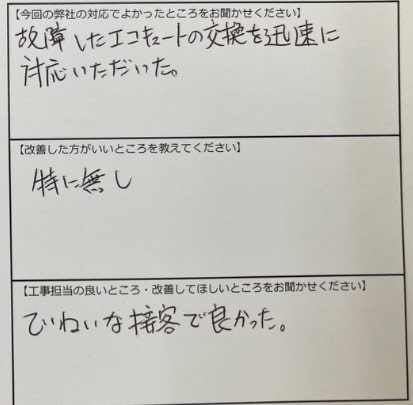 【今回の弊社の対応でよかったところをお聞かせください】
故障したエコキュートの交換を迅速に
対応いただいた。
【改善した方がいいところを教えてください】
特に無し
【工事担当の良いところ・改善してほしいところをお聞かせください】
ていねいな接客で良かった。